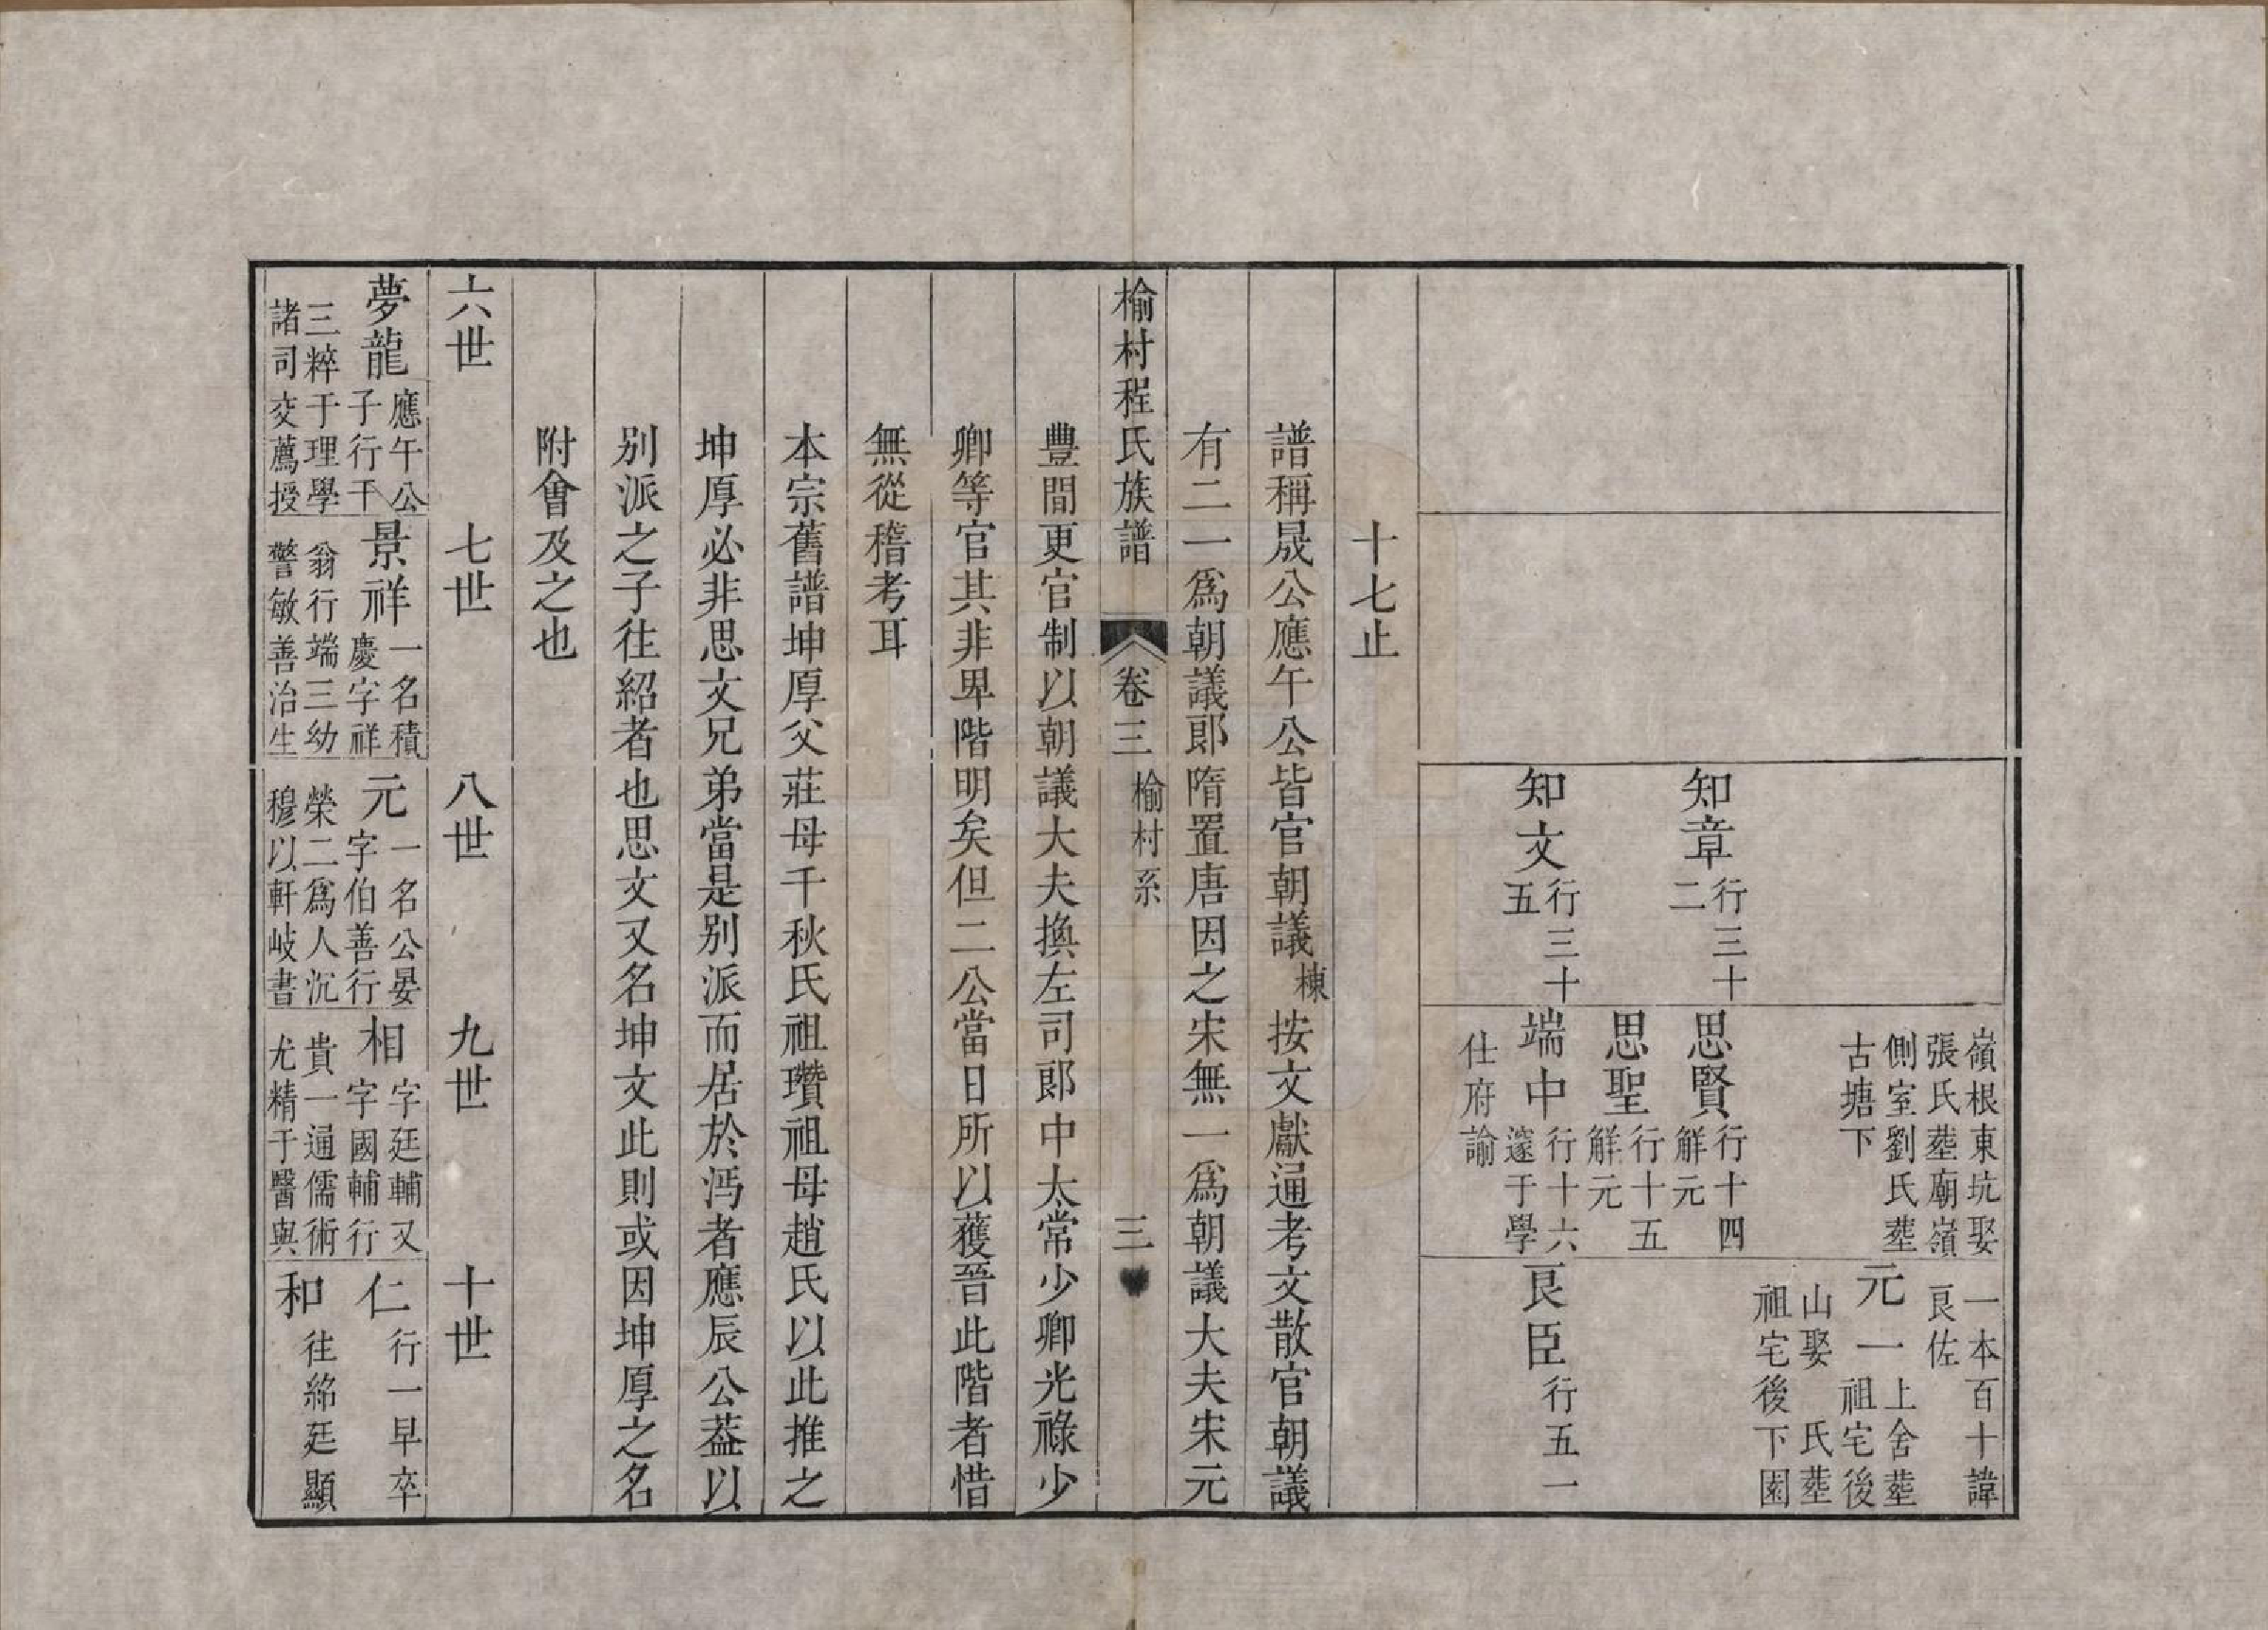 嶺根東坑娶
張氏塟廟嶺
側室劉氏塟
古塘下
一本百十諱
良佐
元一上舍塟
祖宅後
山娶　氏塟
祖宅後下園
知章行三十
二
思賢行十四
解元
思聖行十五
解元
知文行三十
五
端中行十六
邃于學
仕府諭
良臣行五一
十七止
譜稱晟公應午公皆官朝議棟按文獻通考文散官朝議
有二一爲朝議郎隋置唐因之宋無一爲朝議大夫宋元
榆村程氏族譜　卷三　榆村系　三
豐間更官制以朝議大夫換左司郎中太常少卿光祿少
卿等官其非卑階明矣但二公當日所以獲晉此階者惜
無從稽考耳
本宗舊譜坤厚父莊母千秋氏祖瓚祖母趙氏以此推之
坤厚必非思文兄弟當是别派而居於沔者應辰公葢以
别派之子往紹者也思文又名坤文此則或因坤厚之名
附會及之也
六世　七世　八世　九世　十世
夢龍應午公
子行千
三粹于理學
諸司交薦授
景祥一名積
慶字祥
翁行端三幼
警敏善治生
元一名公晏
字伯善行
榮二爲人沉
穆以軒岐書
相字廷輔又
字國輔行
貴一通儒術
尤精于醫與
仁行一早卒
和往紹廷顯